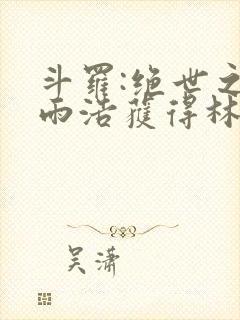 斗羅:绝世之
雨浩獲得林
吴潇